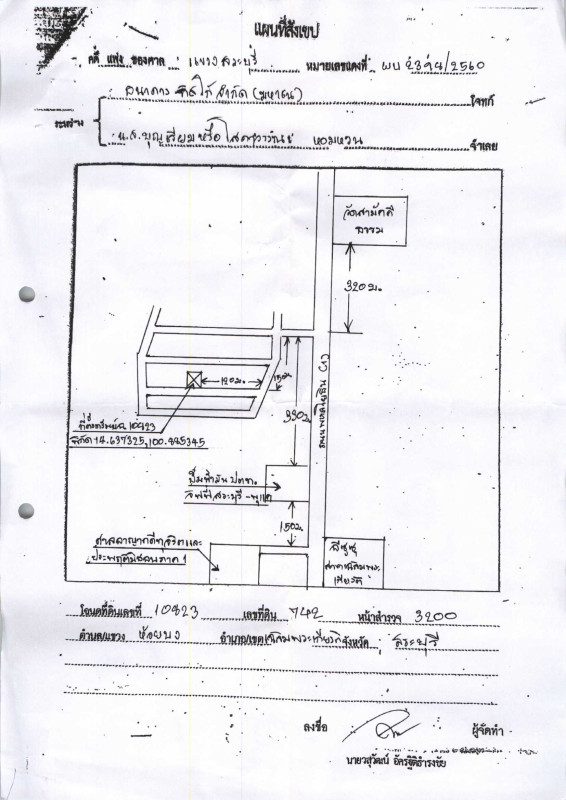 แผนที่สังเขป
คดี แพ่ง ของศาล แขวงสระบุรี หมายเลขแดงที่ ผบ 2394/2560
ธนาคาร ทิสโก้ จำกัด (มหาชน) โจทก์
ระหว่าง
น.ส.บุญเรียมหรือ หอมหวน จำเลย
วัดสามัคคี
ธรรม
320 ม.
ถนนพหลโยธิน (1)
120 ม.
150ม.
330ม.
ที่ตั้งทรัพย์ฉ.10923
พิกัด 14.637325,100.
ปั๊มน้ำมัน ปตท.
สระบุรี-
150ม.
ศาลอาญาคดีทุจริตและ
ประพฤติมิชอบภาค 1
อีซูซุ
สาขาเฉลิมพระ
เกียรติ
โฉนดที่ดินเลขที่ 10923 เลขที่ดิน 742 หน้าสำรวจ 3200
ตำบล/แขวง ห้วยบง อำเภอ/เขต เฉลิมพระเกียรติ จังหวัด สระบุรี
ลงชื่อ ผู้จัดทำ
นายวสุวัฒน์ อัครฐิติธำรงชัย